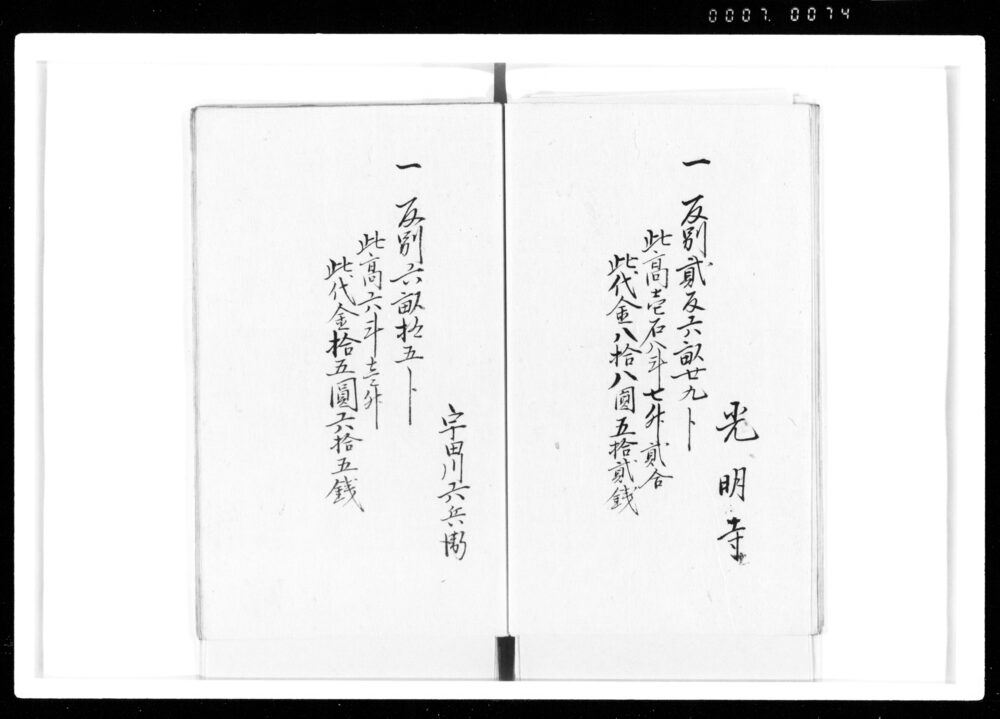 0007. 0074
光明寺
一 反別貳反六畝廿九卜
此高壱石八斗七升貳合
此代金八拾八圓五拾貳銭
宇田川六兵衛
一 反別六畝拾五卜
此高六斗壱升
此代金拾五圓六拾五銭